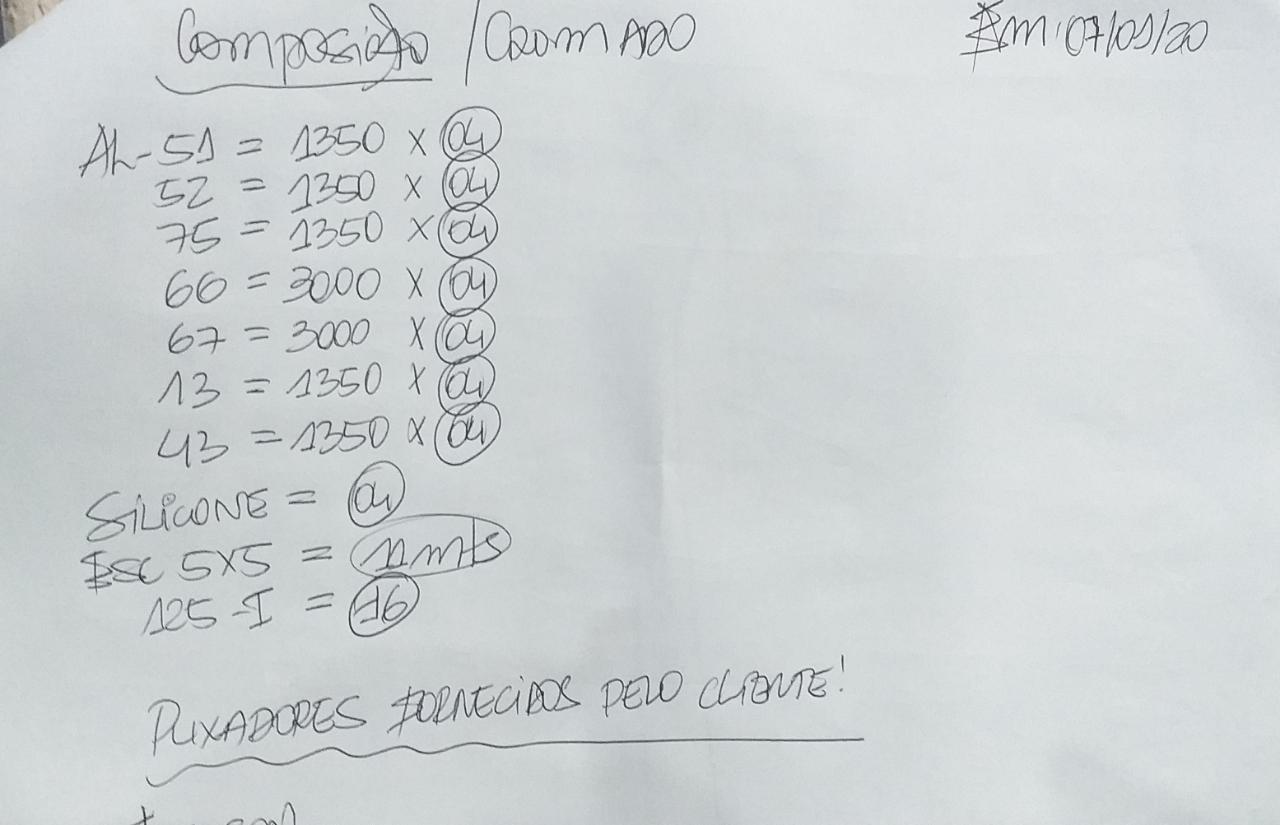 Composição / CROMADO Em: 07/01/20
AL-51 = 1350 x 04
52 = 1350 x 04
75 = 1350 x 04
66 = 3000 x 04
67 = 3000 x 04
13 = 1350 x 04
43 = 1350 x 04
SILICONE = 04
ESC 5x5 = 11mts
125-I = 16
PUXADORES FORNECIDOS PELO CLIENTE!